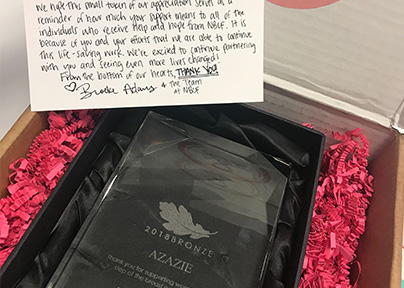 We hope this small token of our appreciation serves as a
reminder of how much your support means to all of the
individuals who receive Help and Hope from NBCF. It is
because of you and your efforts that we are able to continue
this life-saving work. We're excited to continue partnering
with you and seeing even more lives changed!
From the bottom of our hearts, THANK YOU!
Brooke Adams + The Team
at NBCF
2018 BRONZE
AZAZIE
thank you for supporting
step of the breast